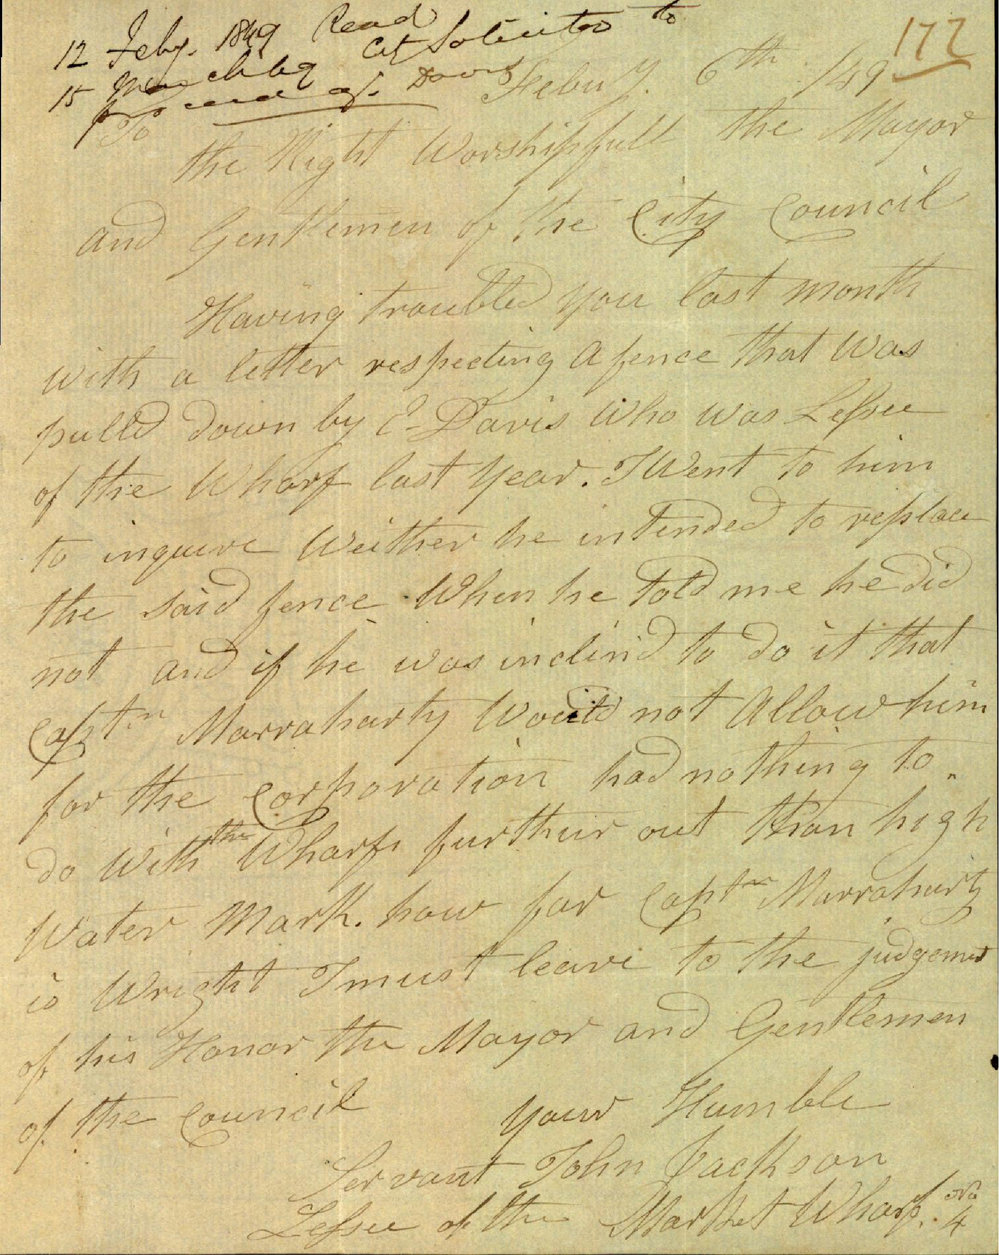 12 Feby. 1849 Read
City Solicitor to
15
proceed agt. Davis
177
Febuy. 6th /49
To
the Right Worshipfull the Mayor
and Gentlemen of the City Council
Having troubled you last month
with a letter respecting a fence that was
pulld down by E Davis who was Lessee
of the Wharf last Year. I Went to him
to inquire Weither he intended to replace
the said fence When he told me he did
not and if he was inclin'd to do it that
Captn Marraharty Would not Allow him
for the Corporation had nothing to
do With the Wharfs further out than high
Water Mark. how far Captn Marraharty
is Wright I must leave to the judgement
of his Honor the Mayor and Gentlemen
of the Council
Your Humble
Servant John Jackson
Lessee of the Market Wharf. No. 4